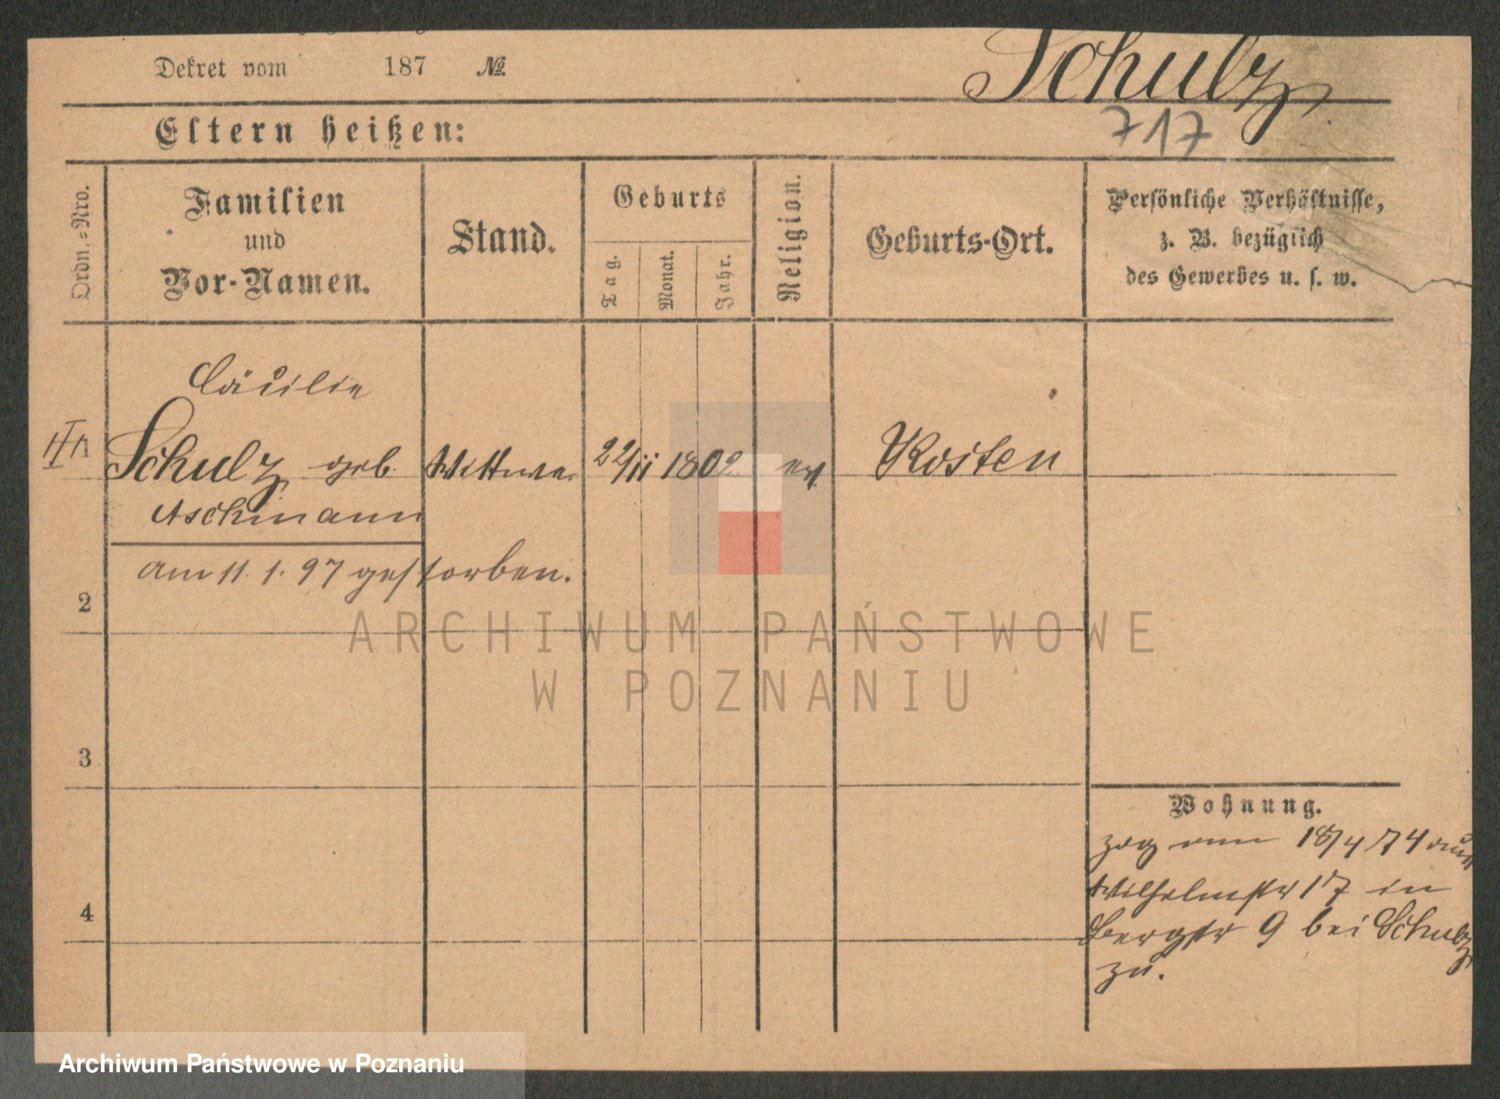 Dekret vom 187 № Schulz
717
Eltern heißen:
Ordn.=Nro.
Familien
und
Vor-Namen.
Stand.
Geburts
Tag.
Monat.
Jahr.
Religion.
Geburts-Ort.
Persönliche Verhältnisse,
z. B. bezüglich
des Gewerbes u. s. w.
Cäcilie
Schulz geb. Wittwe 22/11 1802 ev. Kosten
Aschmann
am 11. 1. 97 gestorben.
2
3
4
Wohnung.
zog am 18/4 74 aus
Wilhelmstr 17 in
Bergstr 9 bei Schulz
zu.
ARCHIWUM PAŃSTWOWE
W POZNANIU
Archiwum Państwowe w Poznaniu